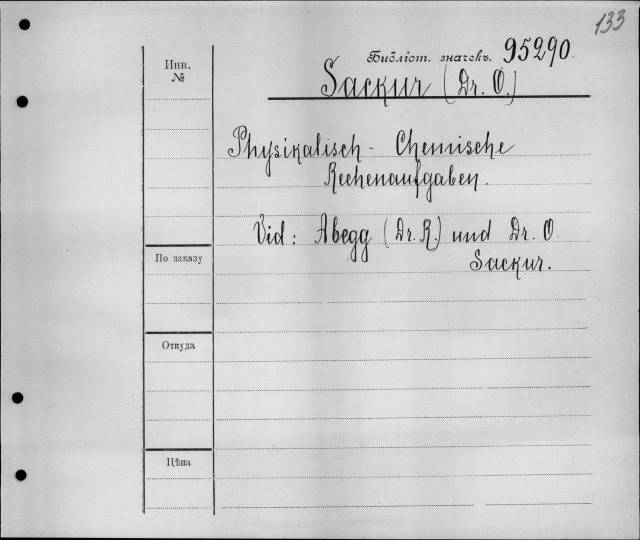 133
Библіот. значекъ. 95290.
Инв.
№
Sackur (Dr. O.)
Physikalisch - Chemische
Rechenaufgaben.
Vid: Abegg (Dr. R.) und Dr. O
Sackur.
По заказу
Откуда
Цѣна